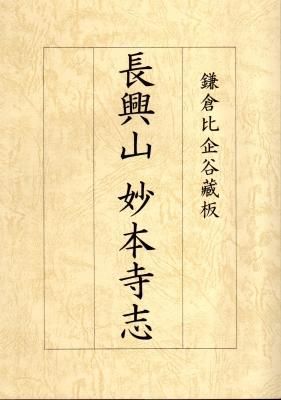 鎌倉比企谷蔵板
長興山 妙本寺志